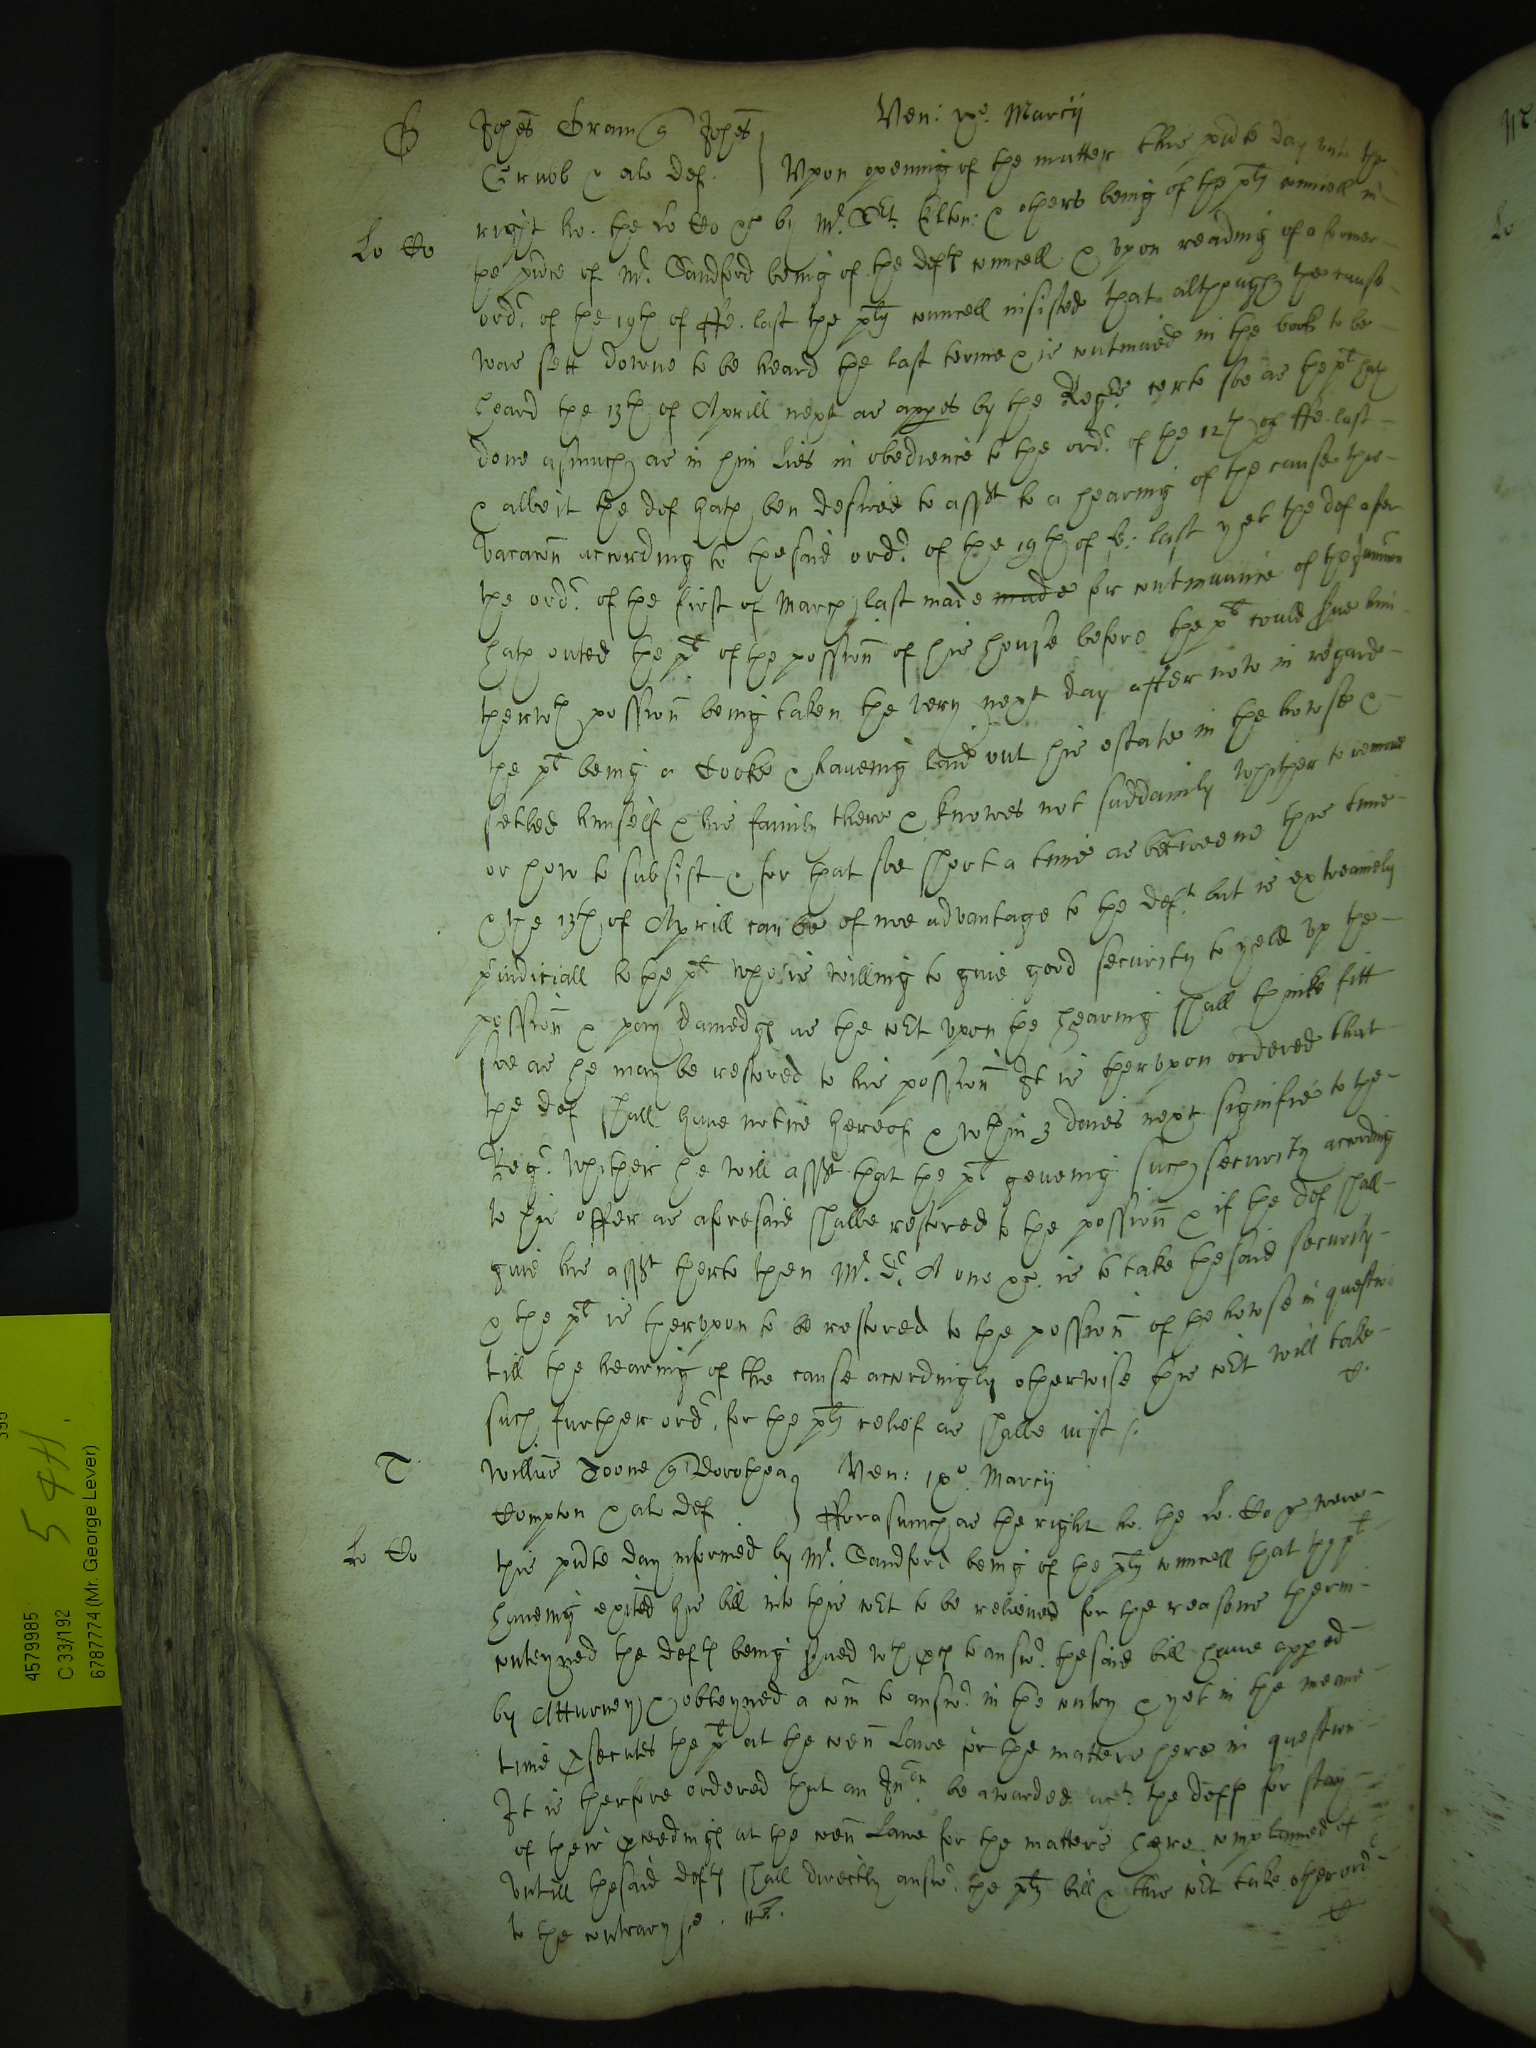 B
Johes Gram q Johes
Grubb & als def.
Ven: ixo. Marcij
Upon openinge of the matter this pnte day unto the
Lo Co
right ho. the Lo Co &c by Mr. Sert. Elton: & others being of the pltes councell in
the pnce of Mr. Sandford being of the deftes councell & upon reading of a former
ordr. of the 19th of ffe. last the pltes councell insisted that although the cause
was sett downe to be heard the last terme & is contynued in the book to be
heard the 13th of Aprill next as appes by the Regrs certe soe as the plt hath
done asmuch as in him lies in obedience to the ordr. of the 12th of ffe. last
& albeit the def hath ben desired to assent to a hearing of the cause this
vacacon according to the said ordr. of the 19th of fe: last yet the def after
the ordr. of the first of March last made made for contynuance of the
hath outed the plt of the possion of his house before the plt could serve him
therwth possion being taken the very next day after now in regarde
the plt being a Cooke & haueing laid out his estate in the howse &
setled himself & his family there & knowes not suddainly whither to remove
or how to subsist & for that soe short a time as betweene this time
& the 13th of Aprill can be of noe advantage to the deft. but is extreamely
piudiciall to the plt who is willing to giue good security to yeld up the
possion & pay damedges as the Cort upon the hearing shall thinke fitt
soe as he may be restored to his possion It is therupon ordered that
the def shall haue notice hereof & wthin 3 daies next signifie to the
Regr. whither he will assent that the plt geueing such security acording
to his offer as aforesaid shalbe restored to the possion & if the def shall
giue his assent therto then Mr. Dr. A one &c. is to take the said security
& the plt is therupon to be restored to the possion of the howse in question
till the hearing of the cause accordingly otherwise this Cort will take
such further ordr. for the pltes relief as shalbe iust
T
Willus Toone q Dorothea
Compton & als def
Ven: ixo. Marcij
Lo Co
fforasmuch as the right ho. the Lo. Co &c were
this pnte day informed by Mr. Sandford being of the pltes councell that the plt
haueing exited his bill into this Cort to be releived for the reasons therin
conteyned the deftes being serued wth pces to answr. the said bill haue apped
by Atturney & obteyned a com to answr in the contry & yet in the meane
time psecutes the plt at the comn Lawe for the matters here in question
It is therfore ordered that an Inion. be awarded agt. the deftes for stay
of their pceedinges at the comn Lawe for the matters here complained of
vntill the said deftes shall directly answr. the pltes bill & this Cort take other ordr
to the contrary